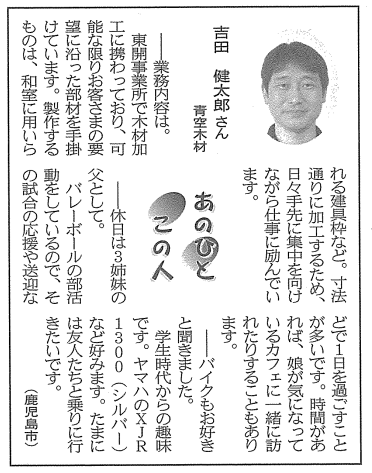 吉田　健太郎さん
青空木材
――業務内容は。
　東開事業所で木材加
工に携わっており、可
能な限りお客さまの要
望に沿った部材を手掛
けています。製作する
ものは、和室に用いら
れる建具枠など。寸法
通りに加工するため、
日々手先に集中を向け
ながら仕事に励んでい
ます。
あのひと
この人
――休日は３姉妹の
父として。
　バレーボールの部活
動をしているので、そ
の試合の応援や送迎な
どで１日を過ごすこと
が多いです。時間があ
れば、娘が気になって
いるカフェに一緒に訪
れたりすることもあり
ます。
――バイクもお好き
と聞きました。
　学生時代からの趣味
です。ヤマハのＸＪＲ
１３００（シルバー）
など好みます。たまに
は友人たちと乗りに行
きたいです。
（鹿児島市）